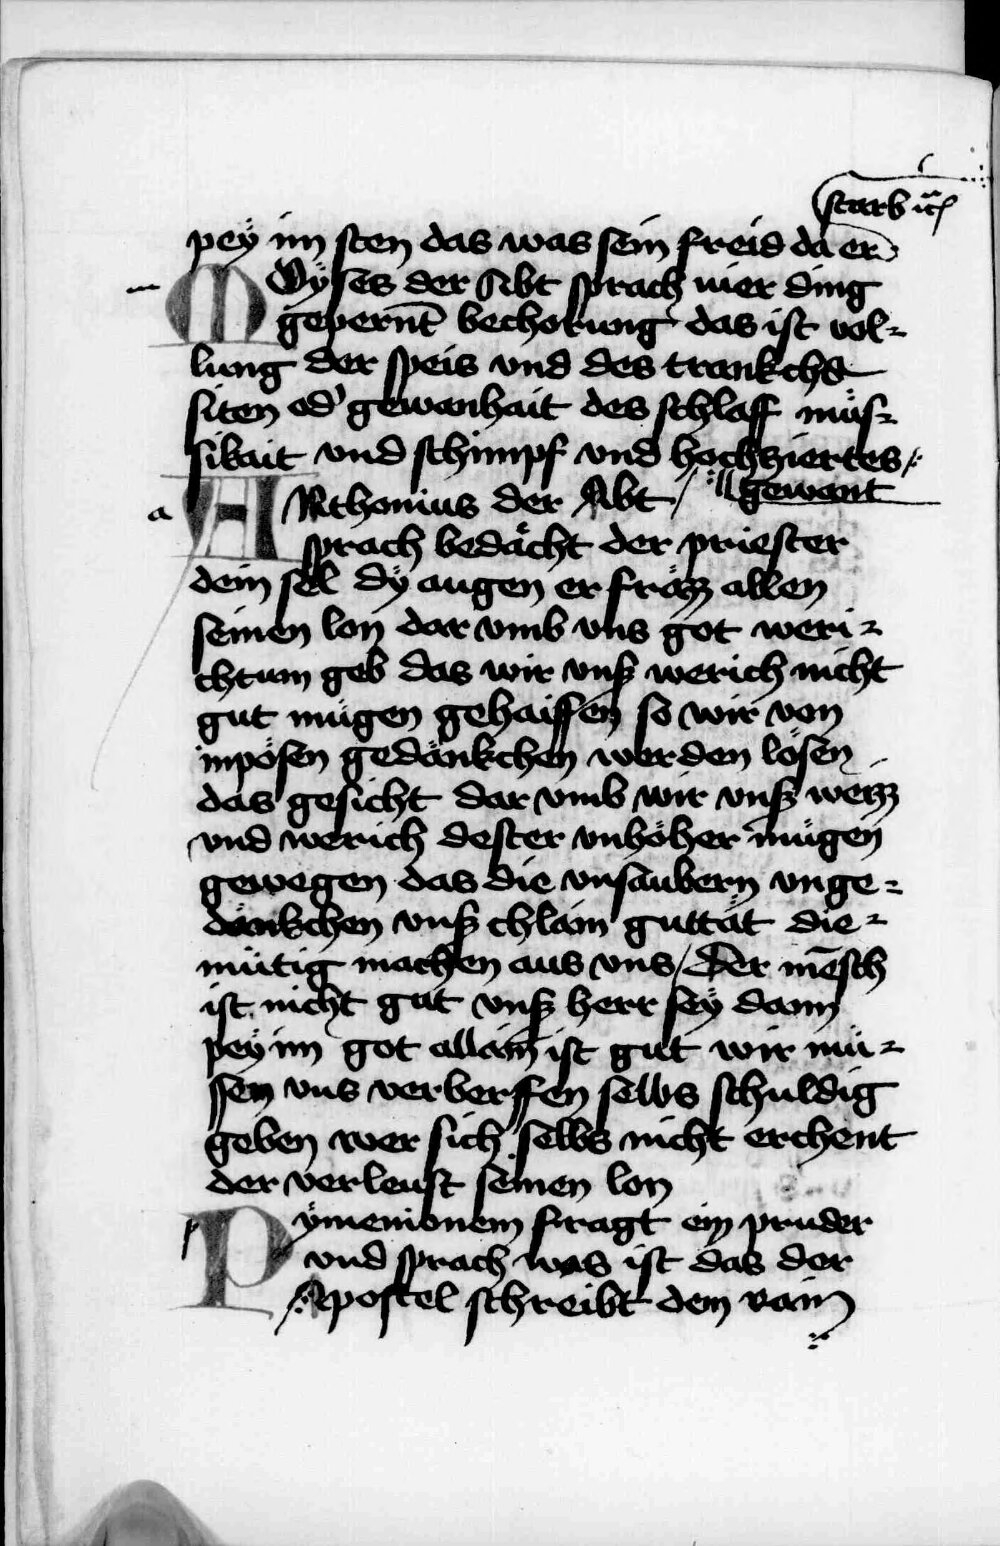 starb ꝛc̃
peÿ im sten das was sein freid da er
m MOyses der Abt sprach uier ding
gepernt̄ bechorung das ist vol-
lung der speis vnd des trankchs
siten od' gewonhait des schlaff müs-
sikait vnd schimpf vnd hochziertes
gewant
a ANthonius der Abt /
sprach bedächt der priester
dein sel dÿ augen er fräz allen
seinen lon dar vmb vns got weri-
chtum geb das wir vnß werich nicht
gut mügen gehaissen so wir von
inpösen gedänkchen werden lösen
das gesicht dar vmb wir vnß
vnd werich dester vnhöher mügen
gewegen das die vnsaubern vnge-
dänkchen vnß chlain guttät die-
mütig machen aus vns / Der mēsch
ist nicht gut vnß herr seÿ dann
peÿ im got allain ist gut wir mü-
ssen vns verberffen selbs schuldig
geben wer sich selbs nicht erchent
der verleust seinen lon
p Pÿmenionem fragt ein pruder
vnd sprach was ist das der
Apostel schreibt dem rain